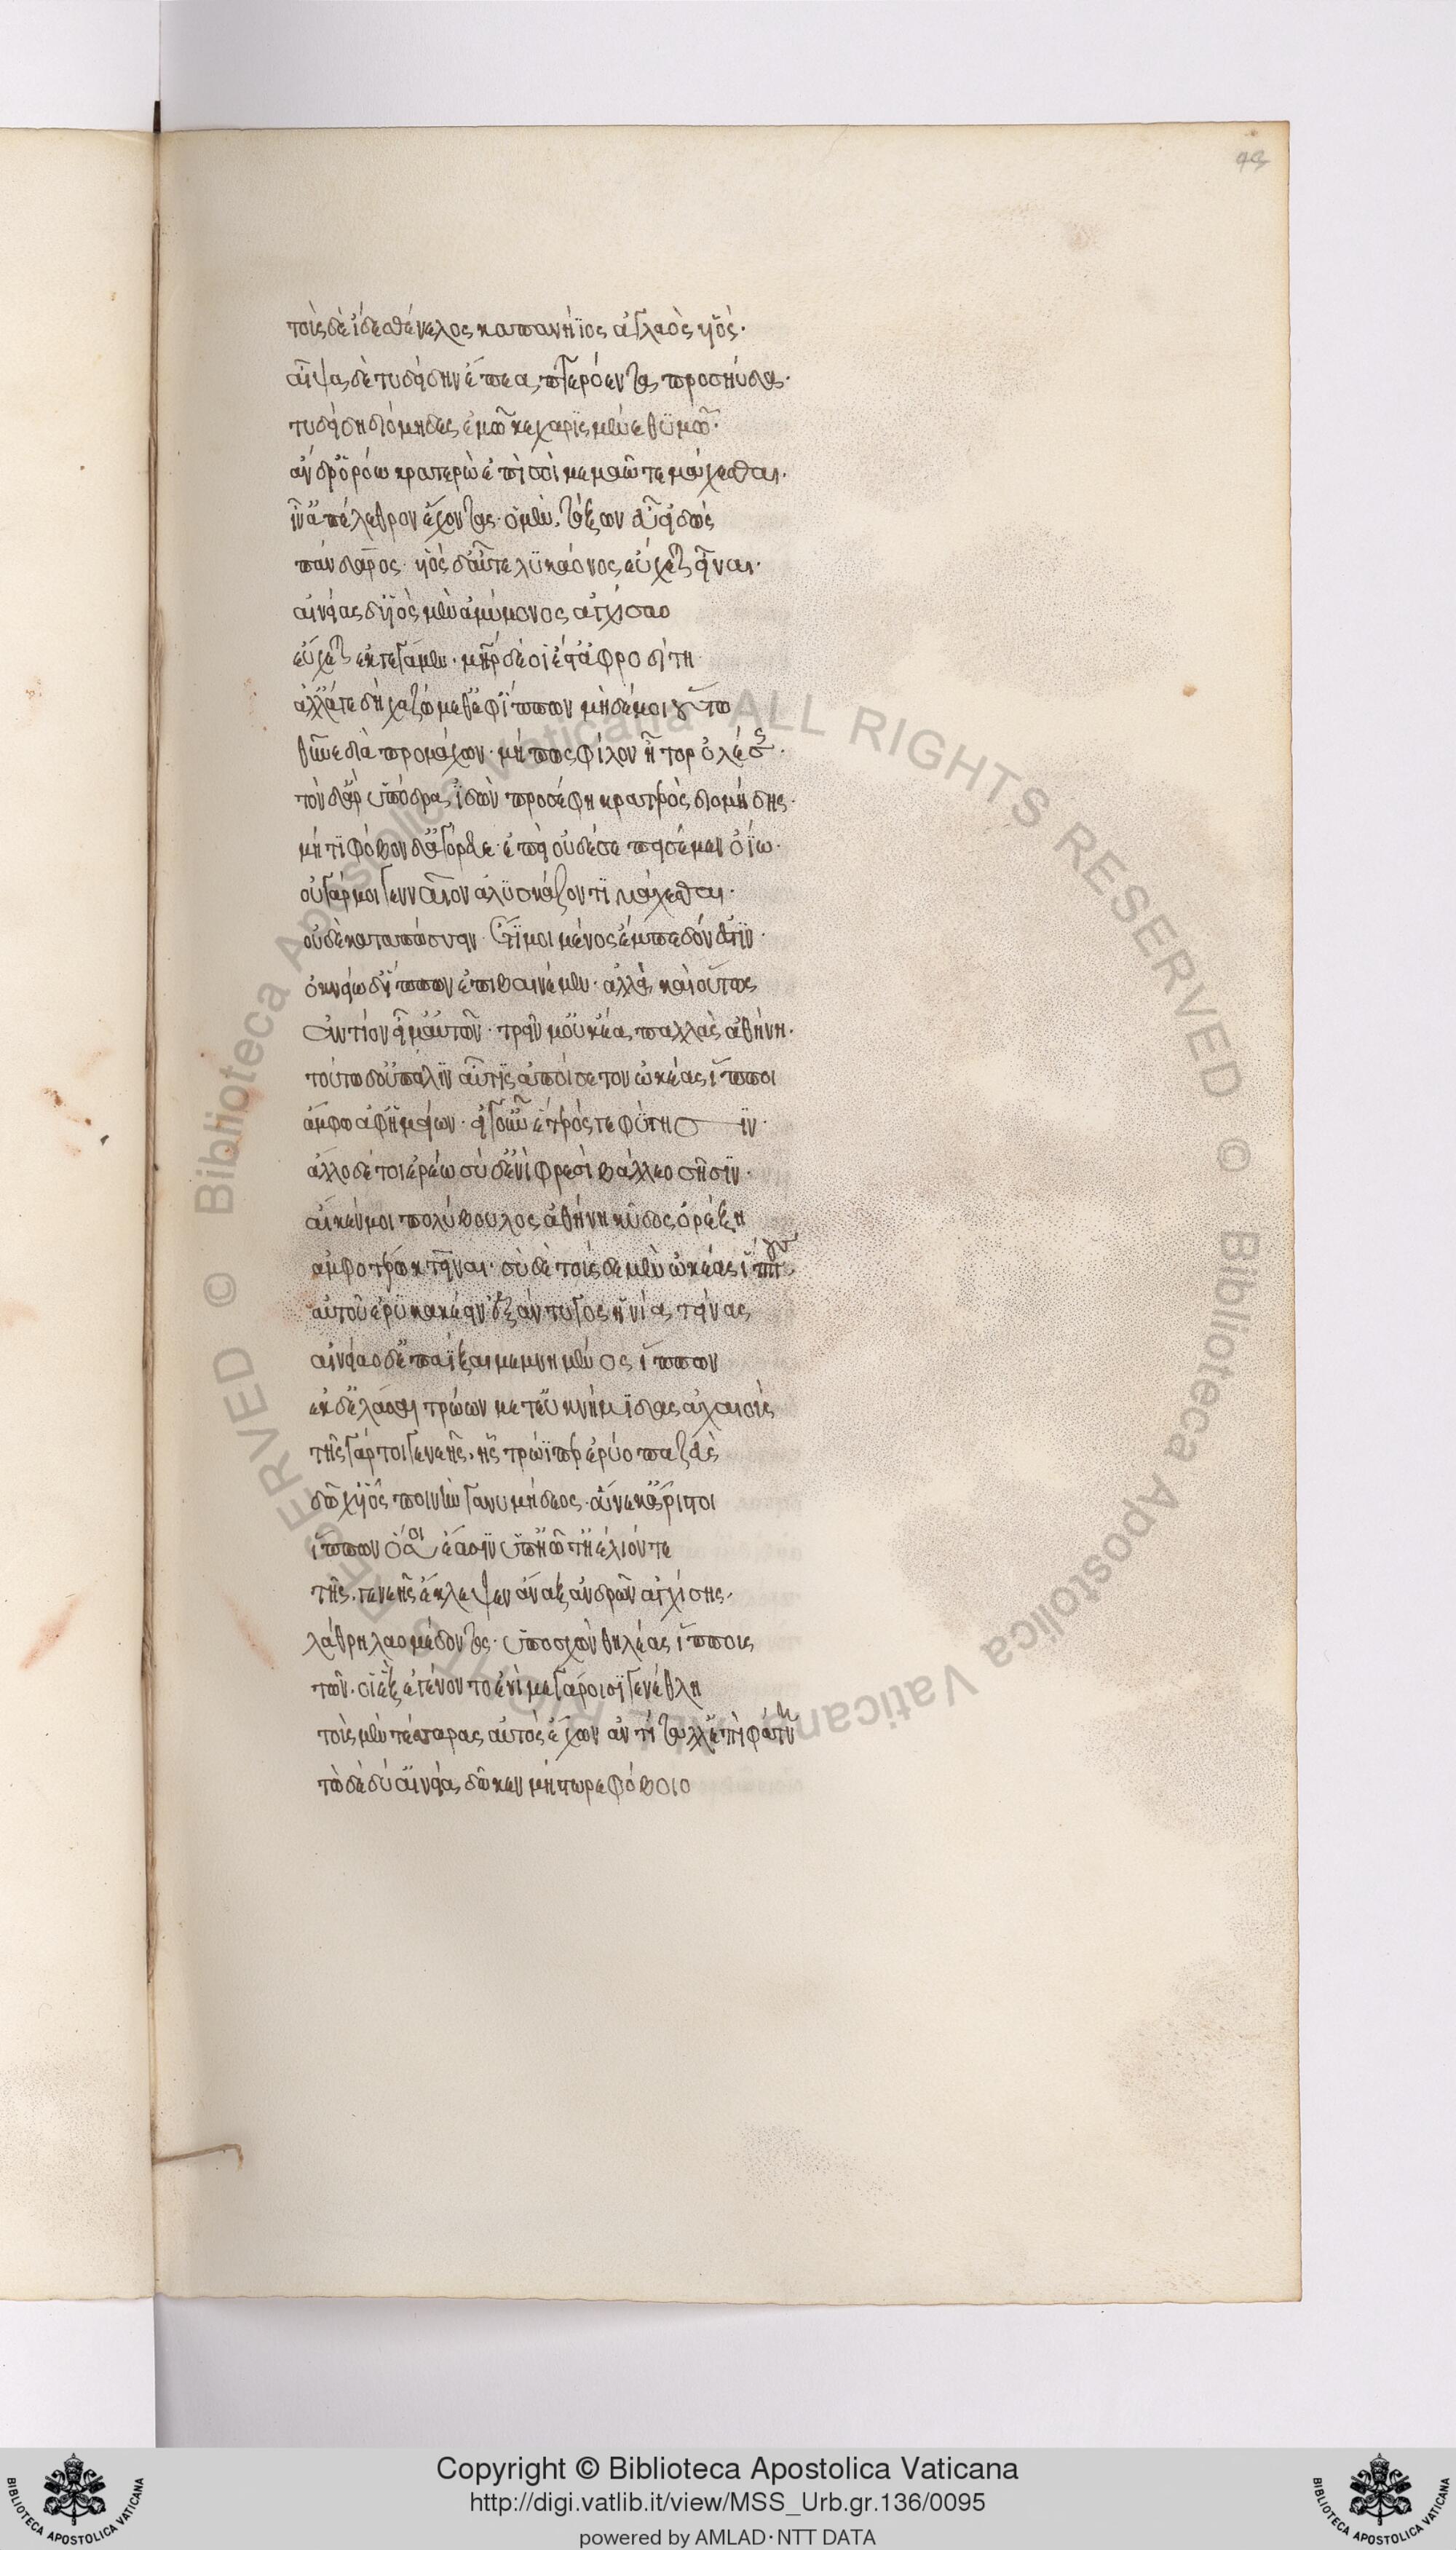 43
τοὺς δὲ ἴδε σθένελος καπανήϊος ἀγλαὸς υἱός·
αἶψα δὲ τυδείδην ἔπεα πτερόεντα προσηύδα·
τυδείδη διόμηδες ἐμῶ κεχαρισμένε θυμῶ·
ἄνδρ' ὁρόω κρατερὼ ἐπὶ σοὶ μεμαῶτε μάχεσθαι·
ἶν' ἀπέλεθρον ἔχοντας· ὁ μὲν τόξων εὖ εἰδώς
πάνδαρος· υἱὸς δ' αὖτε λυκάονος εὔχεται εἶναι·
αἰνείας δ' υἱὸς μὲν ἀμύμονος ἀγχίσαο
εὔχεται ἐκγεγάμεν· μήτηρ δέ οἱ ἐστ' ἀφροδίτη
ἀλλ' ἄγε δὴ χαζώμεθ' ἐφ' ἵππων μὴ δέ μοι οὕτω
θῦνε διὰ προμάχων· μή πως φίλον ἦτορ ὀλέσσης·
τὸν δ' ἄρ' ὑπόδρα ἰδὼν προσέφη κρατερὸς διομήδης·
μή τι φόβον δ' ἀγόρευε· ἐπεὶ οὐδέ σε πεισέμεν οἴω·
οὐ γάρ μοι γενναῖον ἀλυσκάζοντι μάχεσθαι·
οὐδὲ καταπτώσσειν· ἔτι μοι μένος ἔμπεδόν ἐστιν·
ὀκνείω δ' ἵππων ἐπιβαινέμεν· ἀλλὰ καὶ οὕτως
ἀντίον εἶμ' αὐτῶν· τρεῖν μ' οὐκ ἐᾶ παλλὰς ἀθήνη·
τούτω δ' οὐ πάλιν αὖτις ἀποίσετον ὠκέας ἵπποι
ἄμφω ἀφ' ἡμείων· εἴ γ' οὖν ἕτερός γε φύγησιν·
ἄλλο δέ τοι ἐρέω σὺ δ' ἐνὶ φρεσὶ βάλλεο σῆσιν·
αἴ κέν μοι πολύβουλος ἀθήνη κῦδος ὀρέξη
ἀμφοτέρω κτεῖναι· σὺ δὲ τούσδε μὲν ὠκέας ἵππους
αὐτοῦ ἐρυκακέειν ἐξ ἄντυγος ἡνία τείνας
αἰνείαο δ' ἐπαΐξαι μεμνημένος ἵππων
ἐκ δ' ἐλάσαι τρώων μετ' ἐϋκνήμιδας ἀχαιούς
τῆς γάρ τοι γενεῆς, ἧς τρωΐ περ εὐρύοπα ζεύς
δῶχ' υἷος ποινὴν γανυμήδεος· οὕνεκ' ἄριστοι
ἵππων ὅσσοι ἔασιν ὑπ' ἠῶ τ' ἠέλιόν τε
τῆς γενεῆς ἔκλεψεν ἄναξ ἀνδρῶν ἀγχίσης·
λάθρη λαομέδοντος· ὑποσχὼν θηλέας ἵππους
τῶν· οἱ ἓξ ἐγένοντο ἐνὶ μεγάροισι γενέθλη
τοὺς μὲν τέσσαρας αὐτὸς ἔχων ἀντίταλλ' ἐπὶ φάτνη
τὼ δὲ δύ' αἰνεία δῶκεν μήστωρε φόβοιο
© Biblioteca Apostolica Vaticana ALL RIGHTS RESERVED © Biblioteca Apostolica Vaticana ALL RIGHTS RESERVED
BIBLIOTECA APOSTOLICA VATICANA
Copyright © Biblioteca Apostolica Vaticana
http://digi.vatlib.it/view/MSS_Urb.gr.136/0095
powered by AMLAD·NTT DATA
BIBLIOTECA APOSTOLICA VATICANA